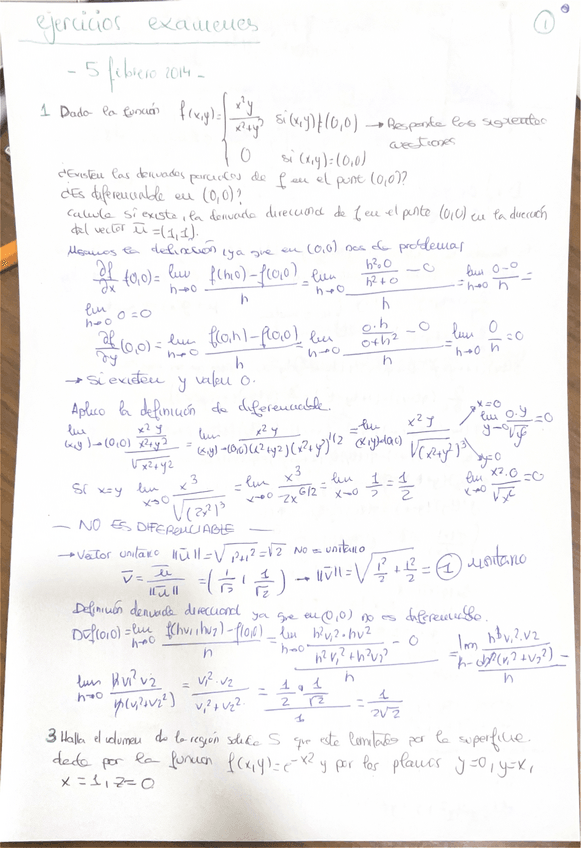 ejercicios examenes
1
- 5 febrero 2014 -
1 Dada la función f(x,y) = { x²y / x²+y² si (x,y) ≠ (0,0) → Responde las siguientes cuestiones
0 si (x,y) = (0,0)
¿Existen las derivadas parciales de f en el punt (0,0)?
¿Es diferenciable en (0,0)?
Calcula si existe, la derivada direccional de f en el punto (0,0) en la dirección
del vector ū = (1,1).
la definición, ya que en (0,0) nos da problemas
∂f/∂x (0,0) = lim h→0 f(h,0) - f(0,0) / h = lim h→0 (h²·0 / h²+0 - 0) / h = lim h→0 0-0 / h =
lim h→0 0 = 0
∂f/∂y (0,0) = lim h→0 f(0,h) - f(0,0) / h = lim h→0 (0·h / 0+h² - 0) / h = lim h→0 0/h = 0
→ Si existen y valen 0.
Aplico la definición de diferenciable.
lim (x,y)→(0,0) (x²y / x²+y²) / √x²+y² = lim (x,y)→(0,0) x²y / (x²+y²)(x²+y²)^1/2 = lim (x,y)→(0,0) x²y / √(x²+y²)³ x=0 lim y→0 0·y / √y⁶ = 0
y=0 lim x→0 x²·0 / √x⁶ = 0
Si x=y lim x→0 x³ / √(2x²)³ = lim x→0 x³ / 2x^6/2 = lim x→0 1/2 = 1/2
— NO ES DIFERENCIABLE —
→ Vector unitario ||ū|| = √1²+1² = √2 No = unitario
v̄ = ū / ||ū|| = (1/√2, 1/√2) → ||v̄|| = √1²/2 + 1²/2 = 1 unitario
Definición derivada direccional ya que en (0,0) no es diferenciable.
Dūf(0,0) = lim h→0 f(hv₁, hv₂) - f(0,0) / h = lim h→0 (h²v₁²·hv² / h²v₁²+h²v₂² - 0) / h = lim
lim h→0 h v₁² v₂ / h(v₁²+v₂²) = v₁²·v₂ / v₁²+v₂² = (1/2 · 1/√2) / 1 = 1 / 2√2
3 Halla el volumen de la región solida S que este limitada por la superficie
dada por la función f(x,y) = e^-x² y por los planos y=0, y=x,
x=1, z=0